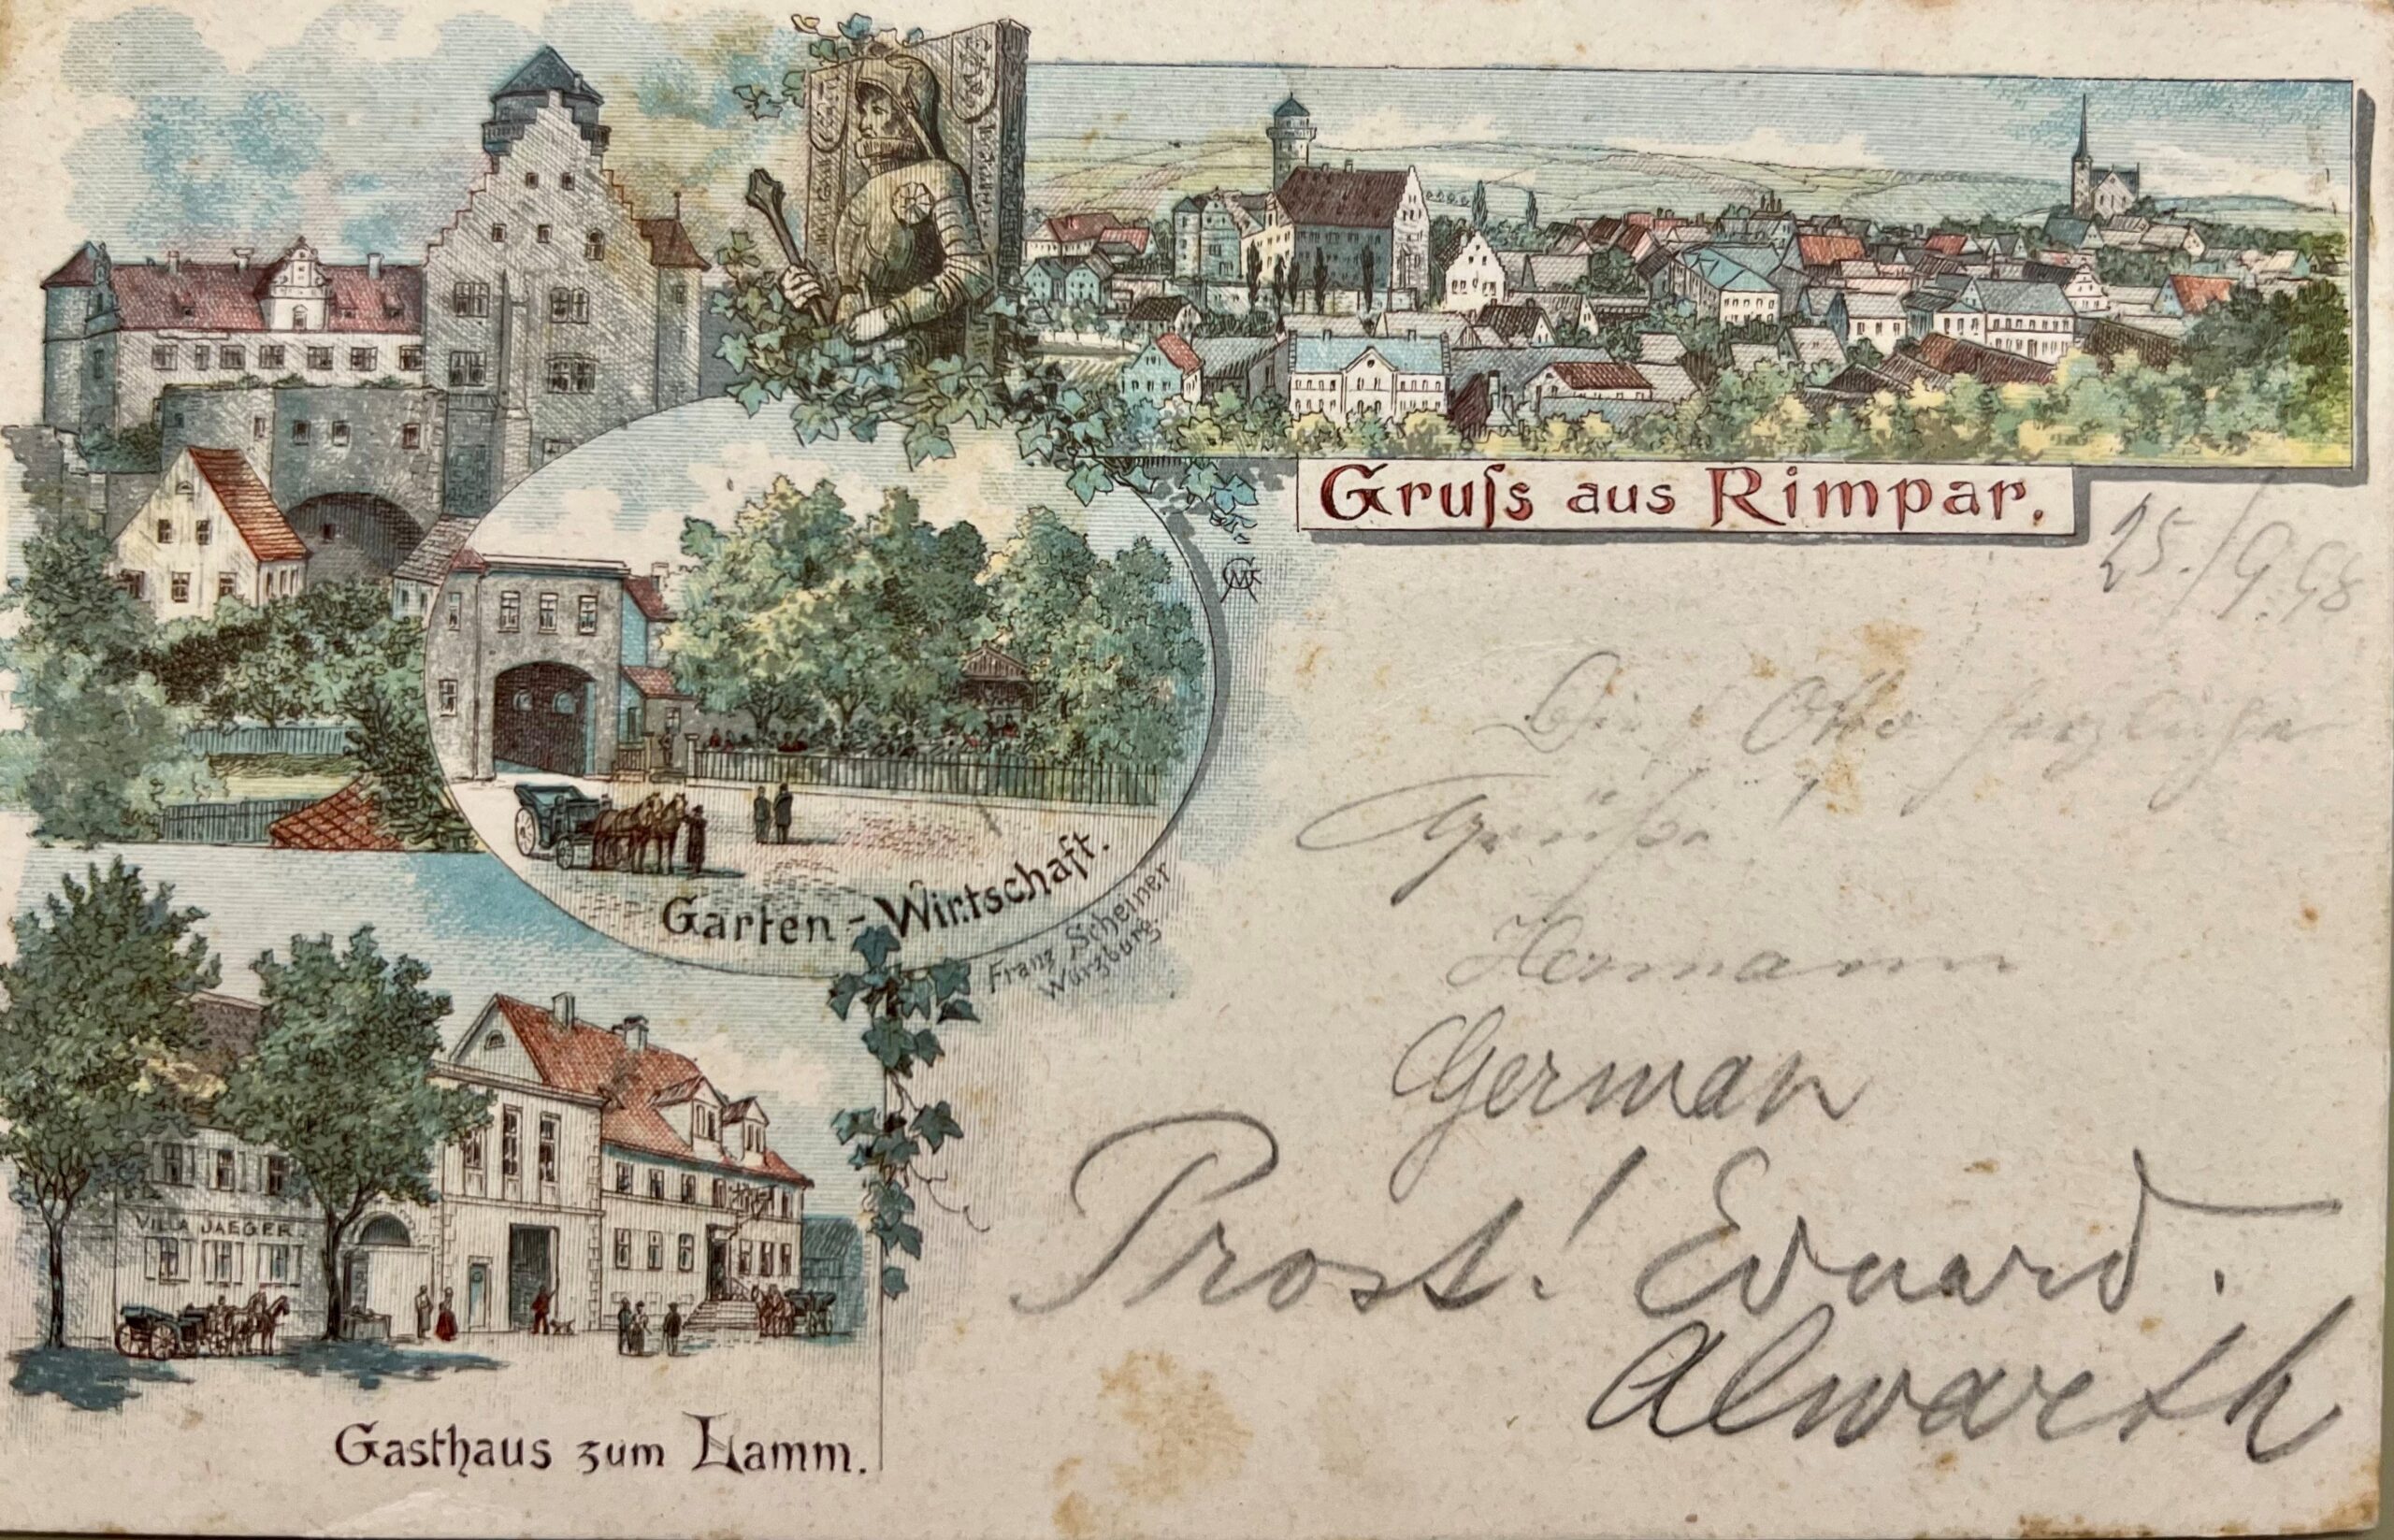 Gruſs aus Rimpar.
25./9.98
Otto herzliche
Grüße
Hermann
German
Prost! Eduard.
Alwarth
Garten-Wirtschaft.
Franz Scheiner
Würzburg.
VILLA JAEGER
Gasthaus zum Lamm.